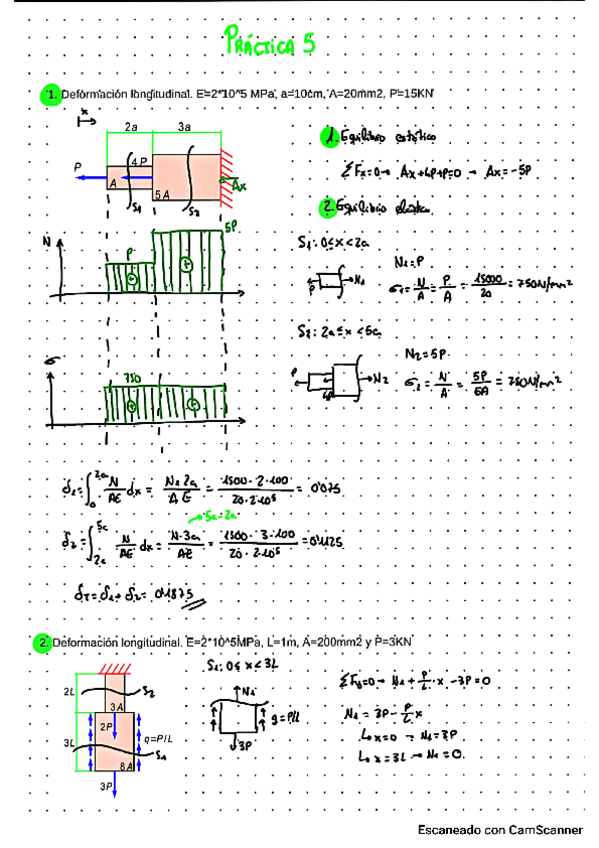 PRÁCTICA 5
1. Deformación longitudinal. E=2*10^5 MPa, a=10cm, A=20mm2, P=15KN
x
2a 3a
1. Equilibrio estático
P 4P A 5A Ax
S1 S2
ΣFx=0 → Ax+4P+P=0 → Ax=-5P
2. Equilibrio elástico
N P 5P
S1: 0≤x<2a
N1=P
P N1
σ1 = N/A = P/A = 15000/20 = 750N/mm2
S2: 2a≤x<5a
N2=5P
P 4P N2
σ2 = N/A = 5P/5A = 750N/mm2
σ 750
δ1 = ∫0 2a N/AE dx = N1 2a/A E = 1500·2·100/20·2·10^5 = 0'075
5a-2a
δ2 = ∫2a 5a N/AE dx = N·3a/AE = 1500·3·100/20·2·10^5 = 0'1125
δT = δ1 + δ2 = 0'1875
2. Deformación longitudinal. E=2*10^5MPa, L=1m, A=200mm2 y P=3KN
S1: 0≤x<3L
2L S2
3A
2P
3L q=P/L
S1
8A
3P
N1
q=P/L
3P
ΣFx=0 → N1 + P/L·x -3P=0
N1 = 3P - P/L x
x=0 → N1=3P
x=3L → N1=0
Escaneado con CamScanner